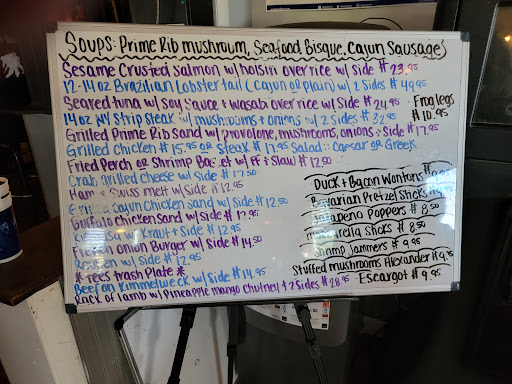 Soups: Prime Rib mushroom, Seafood Bisque, Cajun Sausage
Sesame Crusted salmon w/ hoisin over rice w/ side $23.95
12-14oz Brazilian Lobster tail (Cajun or plain) w/ 2 Sides $49.95
Seared tuna w/ Soy Sauce + Wasabi over rice w/ Side $24.95
14oz NY Strip Steak w/ mushrooms + onions w/ 2 sides $32.95
Frog legs $10.95
Grilled Prime Rib Sand w/ provolone, mushrooms, onions + Side $17.95
Grilled Chicken $15.95 or Steak $17.95 Salad:: Caesar or Greek
Fried Perch or Shrimp Basket w/ FF + Slaw $12.50
Crab grilled cheese w/ Side $17.50
Ham Swiss melt w/ Side $12.95
Cajun Chicken Sand w/ Side $12.95
Buffalo Chicken Sand w/ Side $12.95
w/ Kraut + Side $12.95
French Onion Burger w/ Side $14.50
Reuben w/ Side $12.95
*Fees trash Plate*
Beef on Kimmelweck w/ Side $14.95
Rack of lamb w/ Pineapple mango Chutney + 2 Sides $28.95
Duck + Bacon Wontons
Bavarian Pretzel Sticks
Jalapeno Poppers $8.50
mozzarella Sticks $8.50
Shrimp Jammers $9.95
Stuffed mushrooms Alexander $9.95
Escargot $9.95